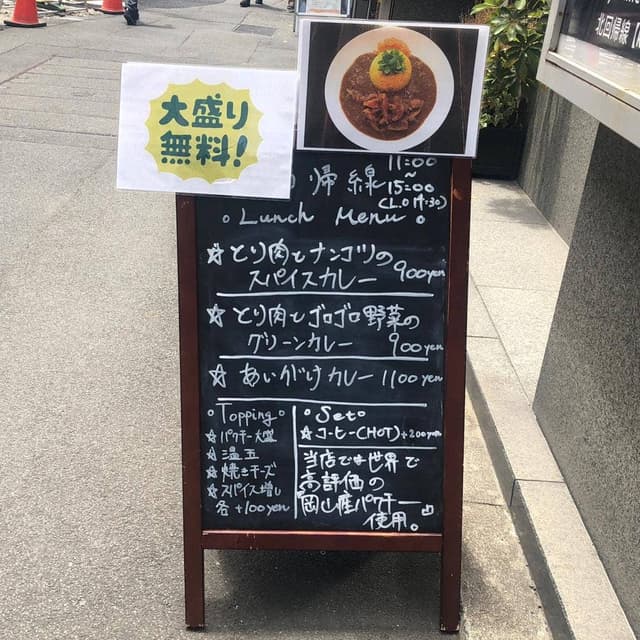 大盛り
無料!
帰線
11:00
~
15:00
(L.O 14:30)
○ Lunch Menu ○
☆ とり肉とナンコツの
スパイスカレー 900yen
☆ とり肉とゴロゴロ野菜の
グリーンカレー 900yen
☆ あいがけカレー 1100yen
○Topping○
☆ パクチー大盛
☆ 温玉
☆ 焼きチーズ
☆ スパイス増し
各 +100yen
○Set○
☆ コーヒー(HOT)+200yen
当店では世界で
高評価の
「岡山産パクチー」
使用。
北回帰線